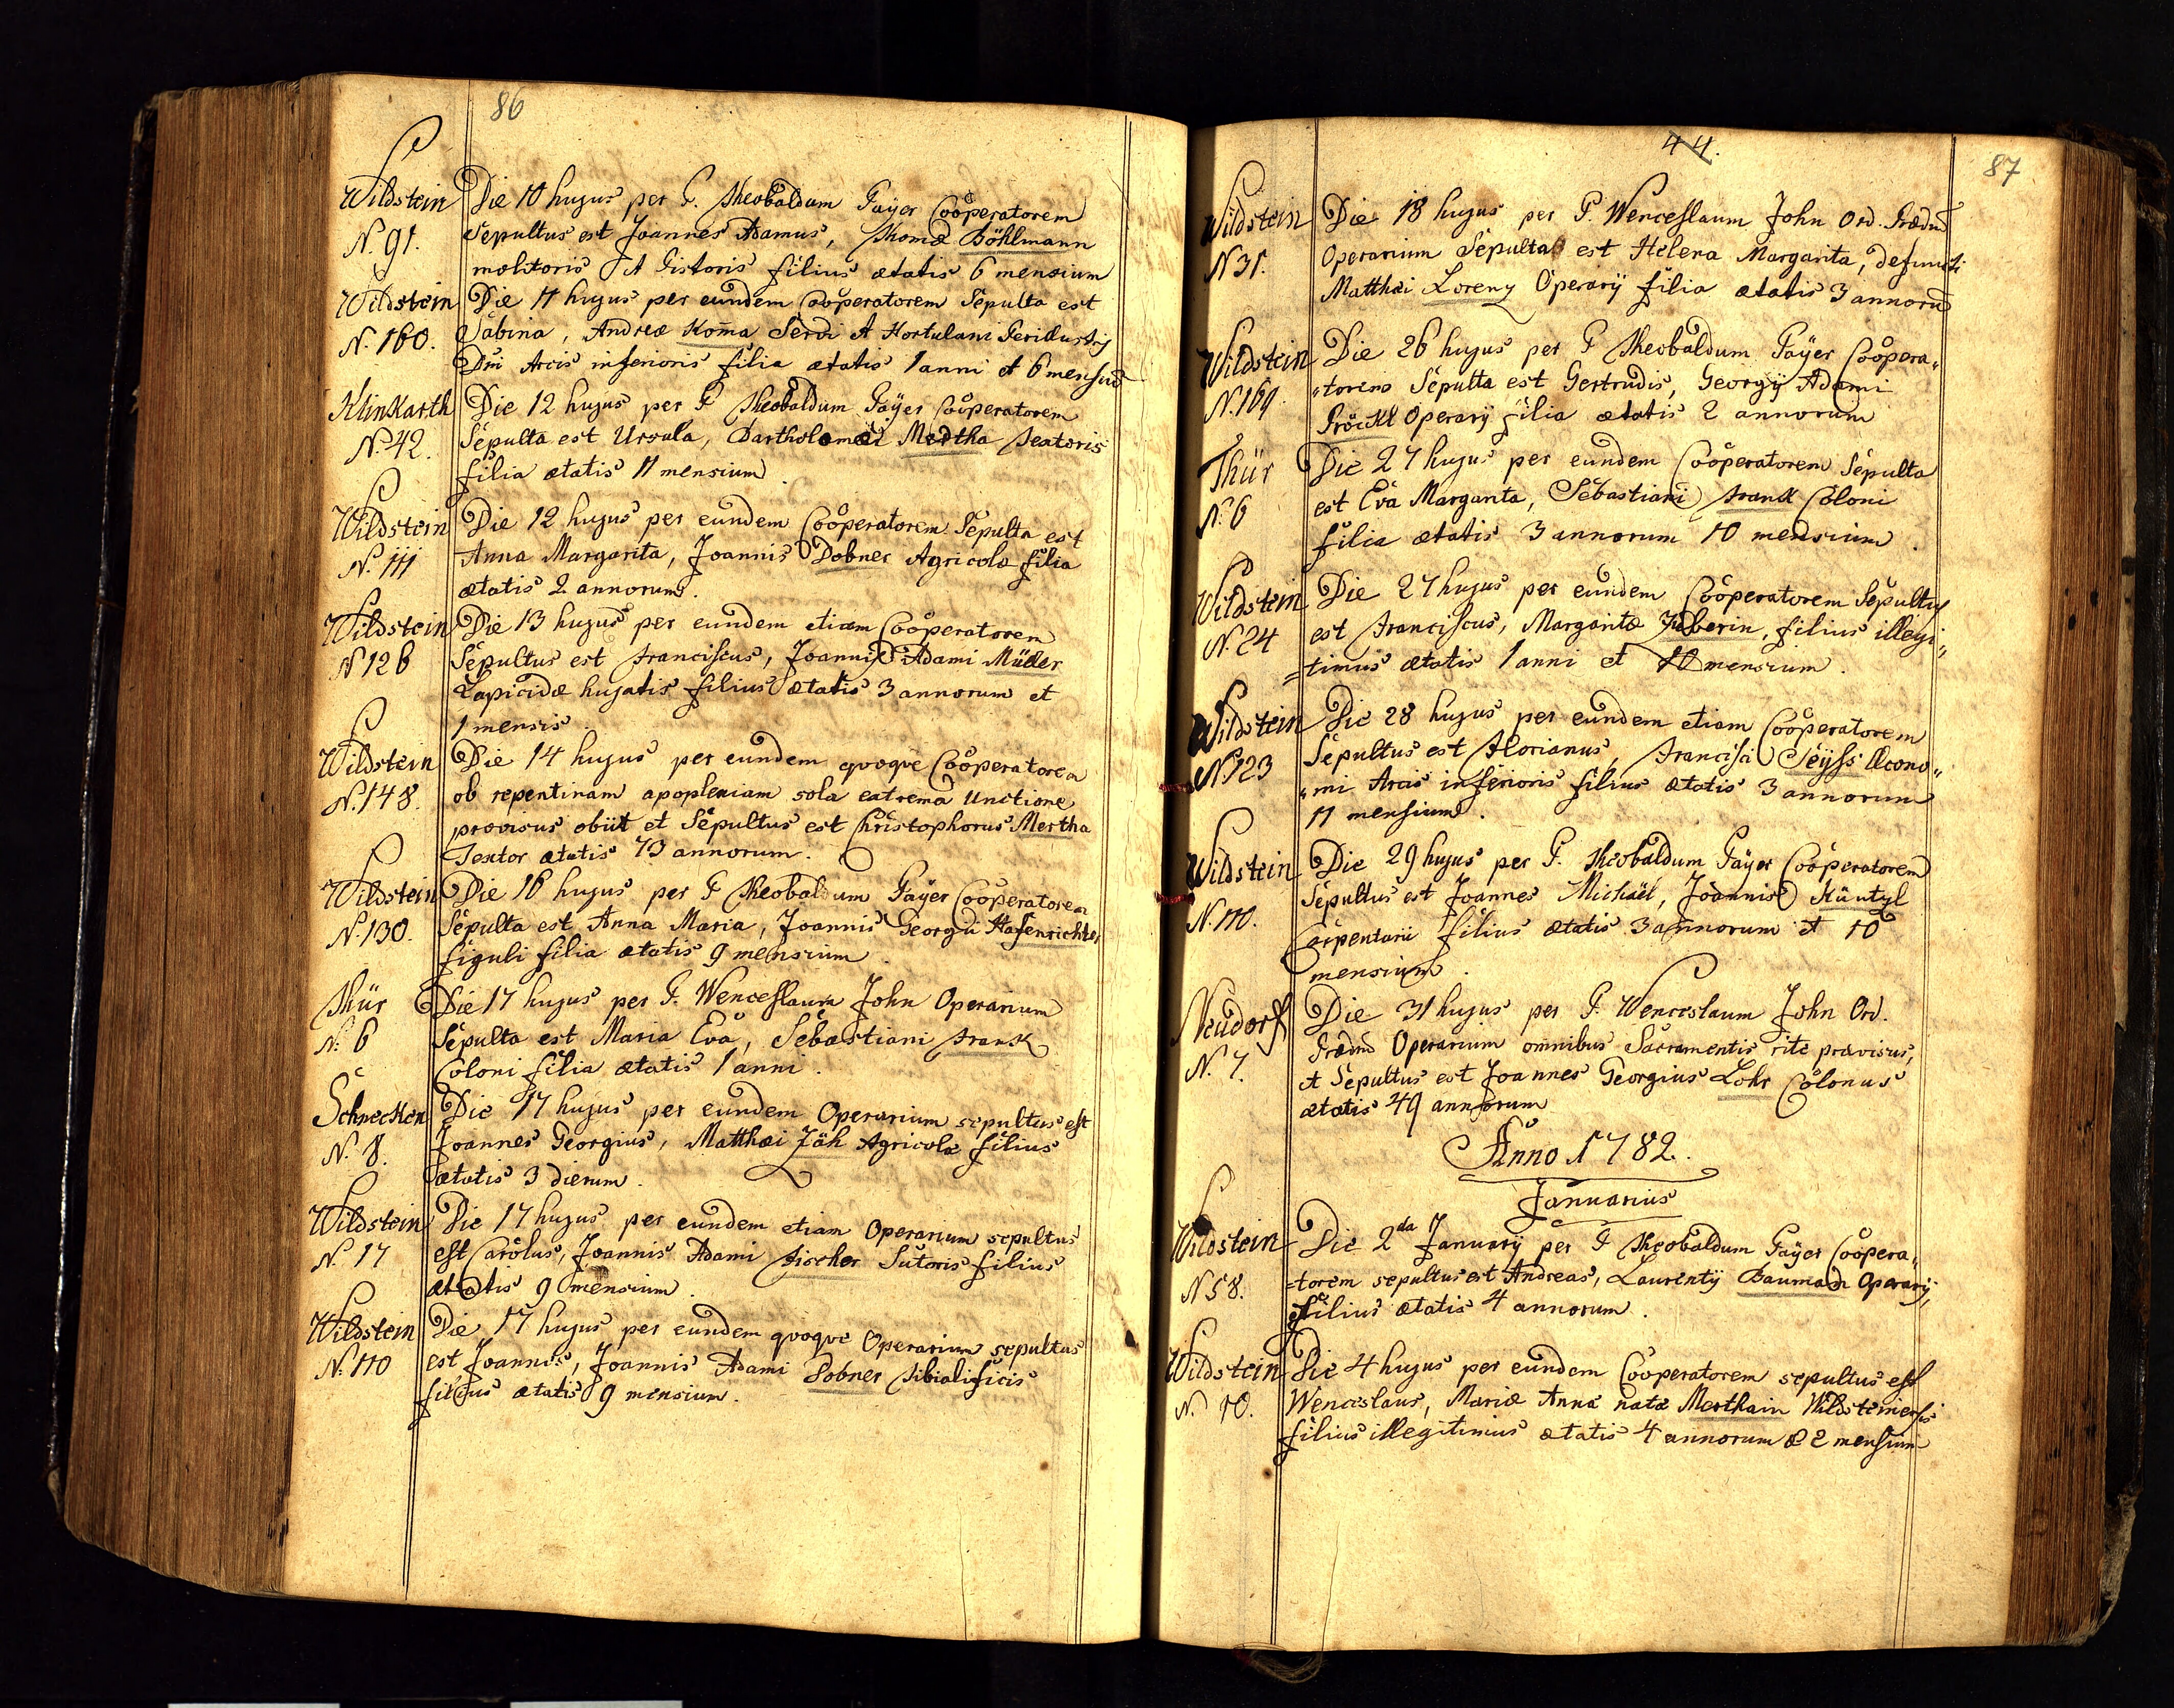 86
Wildstein
N. 91.
Die 10 hujus per P. Theobaldum Payer Cooperatorem
Sepultus est Joannes Adamus, Thomæ Böhlmann
molitoris et Pistoris filius ætatis 6 mensium
Wildstein
N. 160.
Die 11 hujus per eundem Cooperatorem Sepulta est
Sabina, Andreæ Koma Servi et Hortulani Perillustrij
Dni Arcis inferioris filia ætatis 1 anni et 6 mensiū
Klinkarth
N. 42.
Die 12 hujus per P Theobaldum Payer Cooperatorem
Sepulta est Ursula, Bartholomæi Mertha Textoris
filia ætatis 11 mensium
Wildstein
N. 111
Die 12 hujus per eundem Cooperatorem Sepulta est
Anna Margarita, Joannis Dobner Agricolæ filia
ætatis 2 annorum.
Wildstein
N 126
Die 13 hujus per eundem etiam Cooperatorem
Sepultus est Franciscus, Joannis Adami Müller
Lapicidæ hujatis filius ætatis 3 annorum et
1 mensis.
Wildstein
N. 148.
Die 14 hujus per eundem quoque Cooperatorem
ob repentinam apoplexiam sola extrema Unctione
provisus obiit et Sepultus est Christophorus Mertha
Textor ætatis 73 annorum.
Wildstein
N. 130.
Die 16 hujus per P Theobaldum Payer Cooperatorem
Sepulta est Anna Maria, Joannis Georgii Hafenrichter
figuli filia ætatis 9 mensium.
Thür
N. 6
Die 17 hujus per P. Wenceslaum John Operarium
Sepulta est Maria Eva, Sebastiani Frank
Coloni filia ætatis 1 anni.
Schnecken
N. 8.
Die 17 hujus per eundem Operarium sepultus est
Joannes Georgius, Matthæi Jäh Agricolæ filius
ætatis 3 dierum.
Wildstein
N. 17
Die 17 hujus per eundem etiam Operarium sepultus
est Carolus, Joannis Adami Fischer Sutoris filius
ætatis 9 mensium.
Wildstein
N. 110
Die 17 hujus per eundem quoque Operarium sepultus
est Joannes, Joannis Adami Dobner tibialificis
filius ætatis 9 mensium.
44.
87
Wildstein
N 31.
Die 18 hujus per P. Wenceslaum John Ord. Prædm
Operarium Sepulta est Helena Margarita, defuncti
Matthæi Lorenz Operarij filia ætatis 3 annorū
Wildstein
N. 169.
Die 26 hujus per P Theobaldum Payer Coopera„
„torem Sepulta est Gertrudis, Georgij Adami
Pröckl Operarij filia ætatis 2 annorum
Thür
N. 6
Die 27 hujus per eundem Cooperatorem Sepulta
est Eva Margarita, Sebastiani Frank Coloni
filia ætatis 3 annorum 10 mensium.
Wildstein
N. 24
Die 27 hujus per eundem Cooperatorem Sepultus
est Franciscus, Margaritæ Huberin, filius illegi„
=timus ætatis 1 anni et 10 mensium.
Wildstein
N. 123
Die 28 hujus per eundem etiam Cooperatorem
Sepultus est Florianus, Francisci Seyss Œcono„
„mi Arcis inferioris filius ætatis 3 annorum
11 mensium.
Wildstein
N. 110.
Die 29 hujus per P. Theobaldum Payer Cooperatorem
Sepultus est Joannes Michäel, Joannis Küntzl
Carpentarii filius ætatis 3 annorum et 10
mensium.
Neudorf
N. 7.
Die 31 hujus per P. Wenceslaum John Ord.
Prædm Operarium omnibus Sacramentis rite provisus,
et Sepultus est Joannes Georgius Lohr Colonus
ætatis 49 annorum
Anno 1782.
Januarius
Wildstein
N 58.
Die 2da Januarij per P Theobaldum Payer Coopera„
=torem sepultus est Andreas, Laurentij Bauman Operarij,
filius ætatis 4 annorum.
Wildstein
N. 10.
Die 4 hujus per eundem Cooperatorem sepultus est
Wenceslaus, Mariæ Anna natæ Merthain Wildsteinensis
filius illegitimus ætatis 4 annorum & 2 mensium